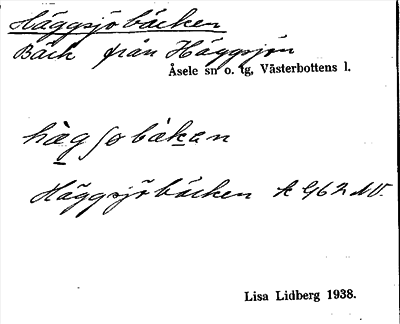 Häggsjöbäcken
Bäck från Häggsjön
Åsele sn o. tg, Västerbottens l.
hägʃobäkan
Häggsjöbäcken k G62 NV.
Lisa Lidberg 1938.